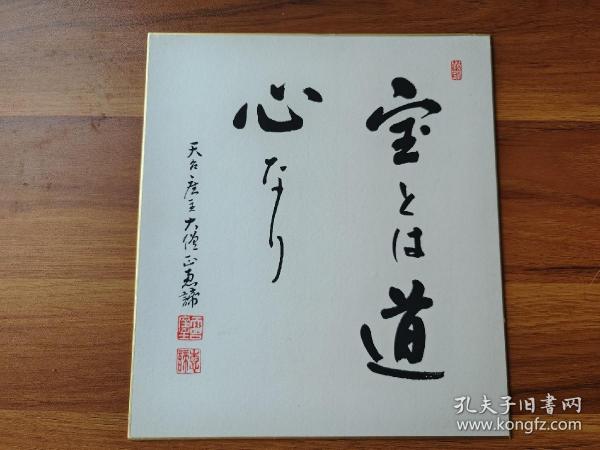 宝とは道
心なり
天台座主大僧正恵諦
孔夫子旧书网
www.kongfz.com